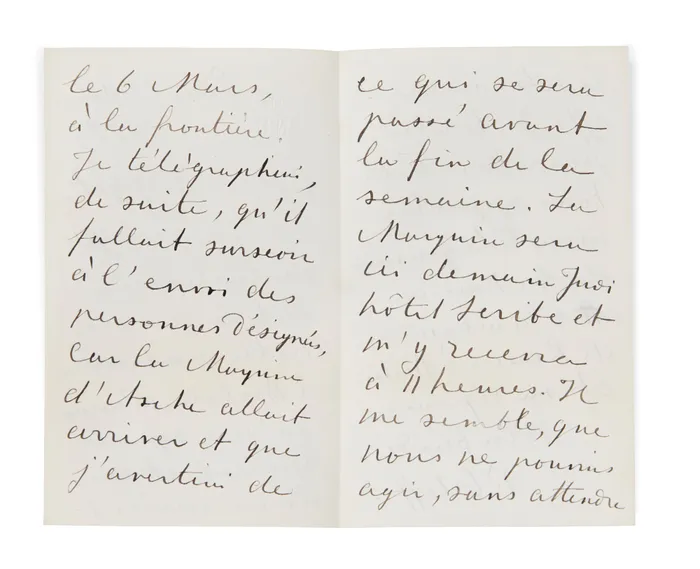 le 6 Mars,
à la frontière.
Je télégraphiai,
de suite, qu'il
fallait surseoir
à l'envoi des
personnes désignées,
car la Marquise
d'Assche allait
arriver et que
j'avertirai de
ce qui se sera
passé avant
la fin de la
semaine. La
Marquise sera
ici demain Jeudi
hôtel Scribe et
m'y recevra
à 11 heures. Il
me semble, que
nous ne pouvons
agir, sans attendre